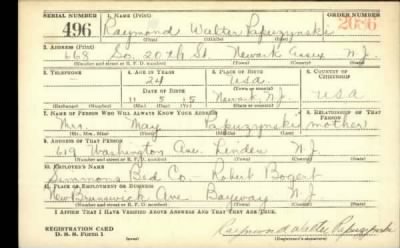 SERIAL NUMBER
1. NAME (Print)
ORDER NUMBER
496
Raymond Walter Papuzynski
2086
2. ADDRESS (Print)
668 So. 20th St. Newark Essex N.J.
(Number and street or R. F. D. number) (Town) (County) (State)
3. TELEPHONE
4. AGE IN YEARS
5. PLACE OF BIRTH
6. COUNTRY OF CITIZENSHIP
24
USA
DATE OF BIRTH
Newark N.J.
USA
11 5 15
(Exchange) (Number) (Mo.) (Day) (Yr.) (State or country)
7. NAME OF PERSON WHO WILL ALWAYS KNOW YOUR ADDRESS
8. RELATIONSHIP OF THAT PERSON
Mrs. May Papuzynski mother
(Mr., Mrs., Miss) (First) (Middle) (Last)
9. ADDRESS OF THAT PERSON
619 Washington Ave. Linden N.J.
(Number and street or R. F. D. number) (Town) (County) (State)
10. EMPLOYER'S NAME
Simmons Bed Co - Robert Bogert
11. PLACE OF EMPLOYMENT OR BUSINESS
New Brunswick Ave Bayway N.J.
(Number and street or R. F. D. number) (Town) (County) (State)
I AFFIRM THAT I HAVE VERIFIED ABOVE ANSWERS AND THAT THEY ARE TRUE.
REGISTRATION CARD
D. S. S. FORM 1
Raymond Walter Papuzynski
(Registrant's signature)